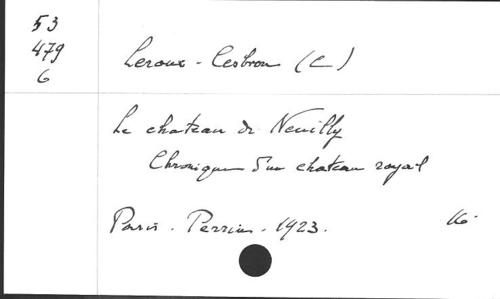 53
479
6
Leroux-Cesbron (C)
Le chateau de Neuilly
Chronique d'un chateau royal
Paris. Perrin. 1923. 16.